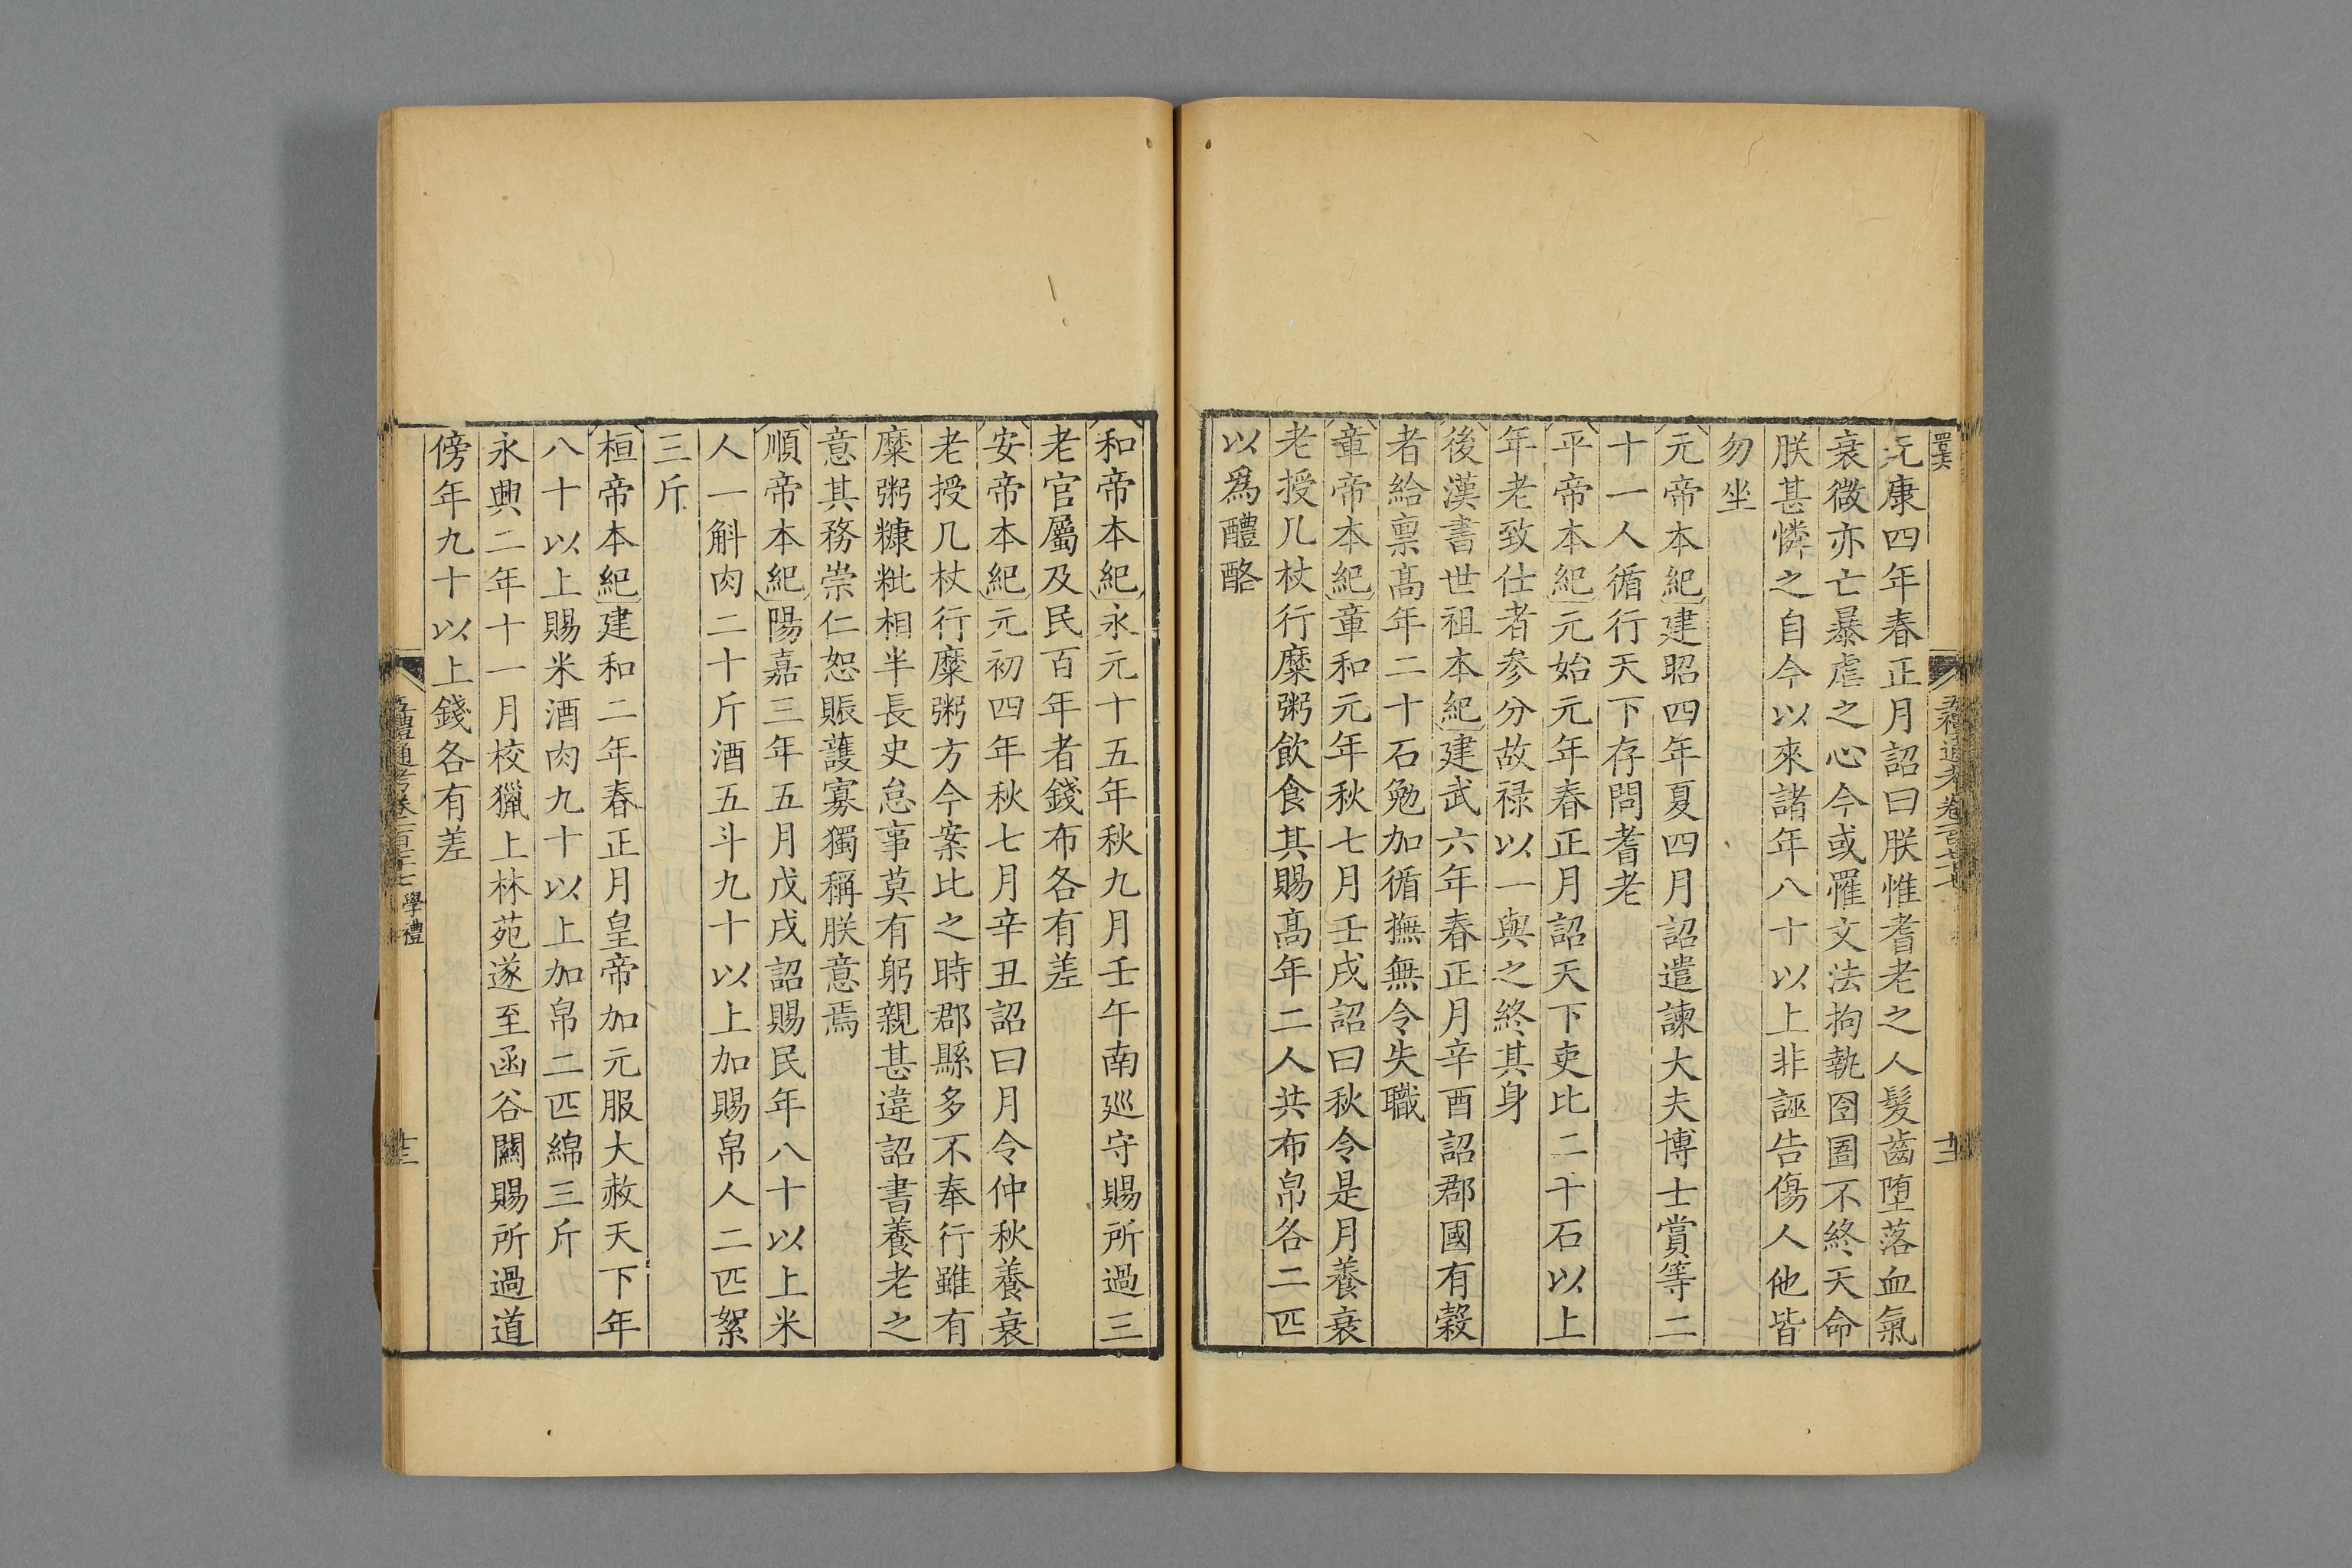 元康四年春正月詔曰朕惟耆老之人髮齒墮落血氣
衰微亦亡暴虐之心今或罹文法拘執囹圄不終天命
朕甚憐之自今以來諸年八十以上非誣告傷人他皆
勿坐
元帝本紀建昭四年夏四月詔遣諫大夫博士賞等二
十一人循行天下存問耆老
平帝本紀元始元年春正月詔天下吏比二千石以上
年老致仕者參分故祿以一與之終其身
後漢書世祖本紀建武六年春正月辛酉詔郡國有穀
者給稟高年二十石勉加循撫無令失職
章帝本紀章和元年秋七月壬戌詔曰秋令是月養衰
老授几杖行糜粥飲食其賜高年二人共布帛各二匹
以爲醴酪
和帝本紀永元十五年秋九月壬午南巡守賜所過三
老官屬及民百年者錢布各有差
安帝本紀元初四年秋七月辛丑詔曰月令仲秋養衰
老授几杖行糜粥方今案比之時郡縣多不奉行雖有
糜粥糠粃相半長史怠事莫有躬親甚違詔書養老之
意其務崇仁恕賑護寡獨稱朕意焉
順帝本紀陽嘉三年五月戊戌詔賜民年八十以上米
人一斛肉二十斤酒五斗九十以上加賜帛人二匹絮
三斤
桓帝本紀建和二年春正月皇帝加元服大赦天下年
八十以上賜米酒肉九十以上加帛二匹綿三斤
永興二年十一月校獵上林苑遂至函谷關賜所過道
傍年九十以上錢各有差
五禮通考卷一百七十七 學禮
十三